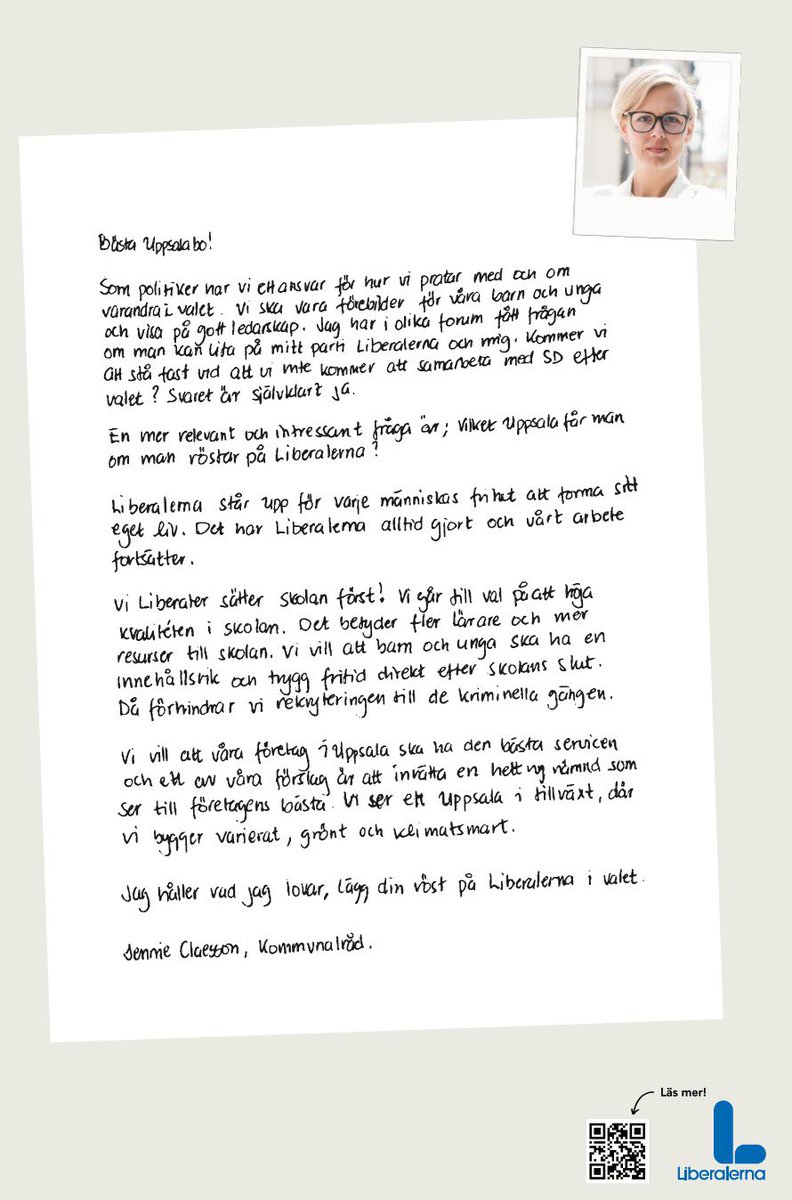 Bästa Uppsalabo!
Som politiker har vi ett ansvar för hur vi pratar med och om
varandra i valet. Vi ska vara förebilder för våra barn och unga
och visa på gott ledarskap. Jag har i olika forum fått frågan
om man kan lita på mitt parti Liberalerna och mig. Kommer vi
att stå fast vid att vi inte kommer att samarbeta med SD efter
valet? Svaret är självklart ja.
En mer relevant och intressant fråga är; vilket Uppsala får man
om man röstar på Liberalerna?
Liberalerna står upp för varje människas frihet att forma sitt
eget liv. Det har Liberalerna alltid gjort och vårt arbete
fortsätter.
Vi Liberaler sätter skolan först! Vi går till val på att höja
kvalitéten i skolan. Det betyder fler lärare och mer
resurser till skolan. Vi vill att barn och unga ska ha en
innehållsrik och trygg fritid direkt efter skolans slut.
Då förhindrar vi rekryteringen till de kriminella gängen.
Vi vill att våra företag i Uppsala ska ha den bästa servicen
och ett av våra förslag är att inrätta en helt ny nämnd som
ser till företagens bästa. Vi ser ett Uppsala i tillväxt, där
vi bygger varierat, grönt och klimatsmart.
Jag håller vad jag lovar, lägg din röst på Liberalerna i valet.
Jennie Claesson, Kommunalråd.
Läs mer!
Liberalerna